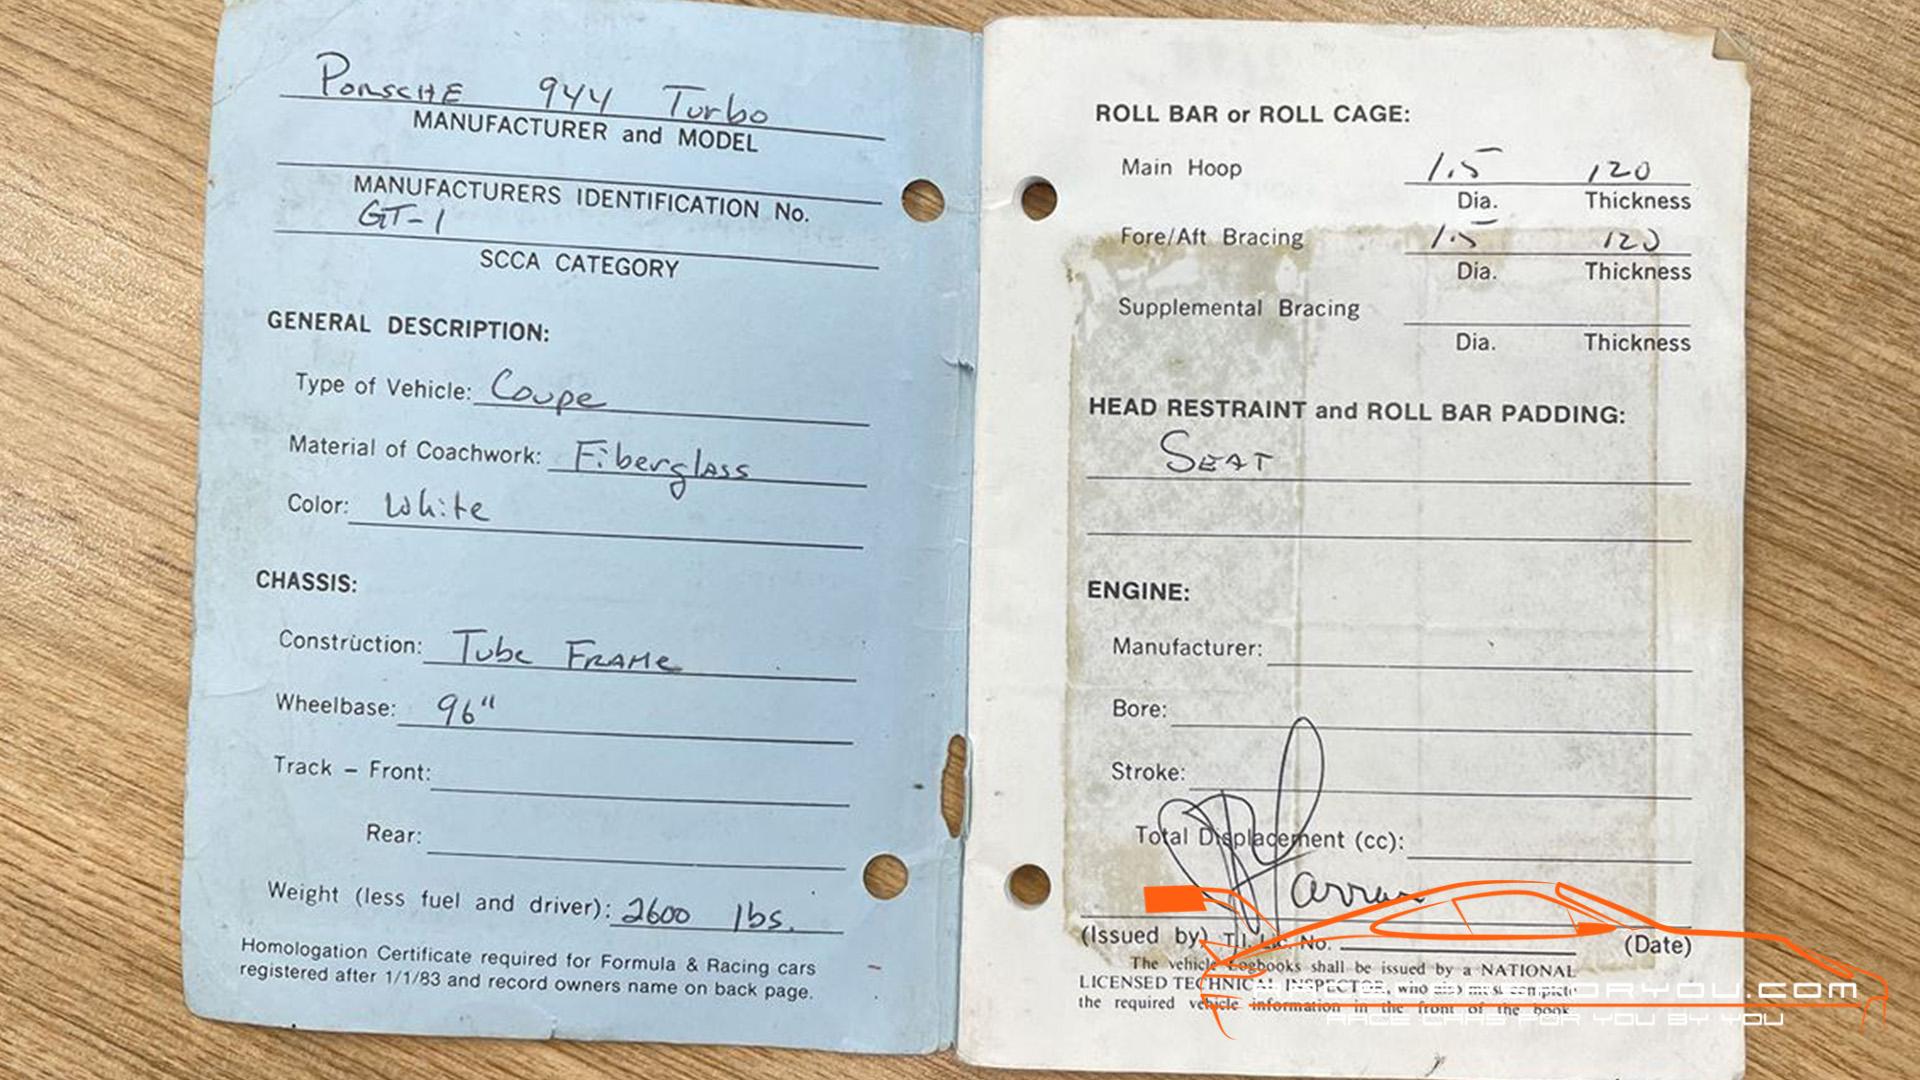 Porsche 944 Turbo
MANUFACTURER and MODEL
MANUFACTURERS IDENTIFICATION No.
GT-1
SCCA CATEGORY
GENERAL DESCRIPTION:
Type of Vehicle: Coupe
Material of Coachwork: Fiberglass
Color: White
CHASSIS:
Construction: Tube Frame
Wheelbase: 96"
Track – Front:
Rear:
Weight (less fuel and driver): 2600 lbs.
Homologation Certificate required for Formula & Racing cars
registered after 1/1/83 and record owners name on back page.
ROLL BAR or ROLL CAGE:
Main Hoop 1.5 120
Dia. Thickness
Fore/Aft Bracing 1.5 120
Dia. Thickness
Supplemental Bracing
Dia. Thickness
HEAD RESTRAINT and ROLL BAR PADDING:
SEAT
ENGINE:
Manufacturer:
Bore:
Stroke:
Total Displacement (cc):
(Issued by) T.I. Lic. No. (Date)
The vehicle Logbooks shall be issued by a NATIONAL
LICENSED TECHNICAL INSPECTOR, who also must complete
the required vehicle information in the front of the book
RACE CARS FOR YOU BY YOU